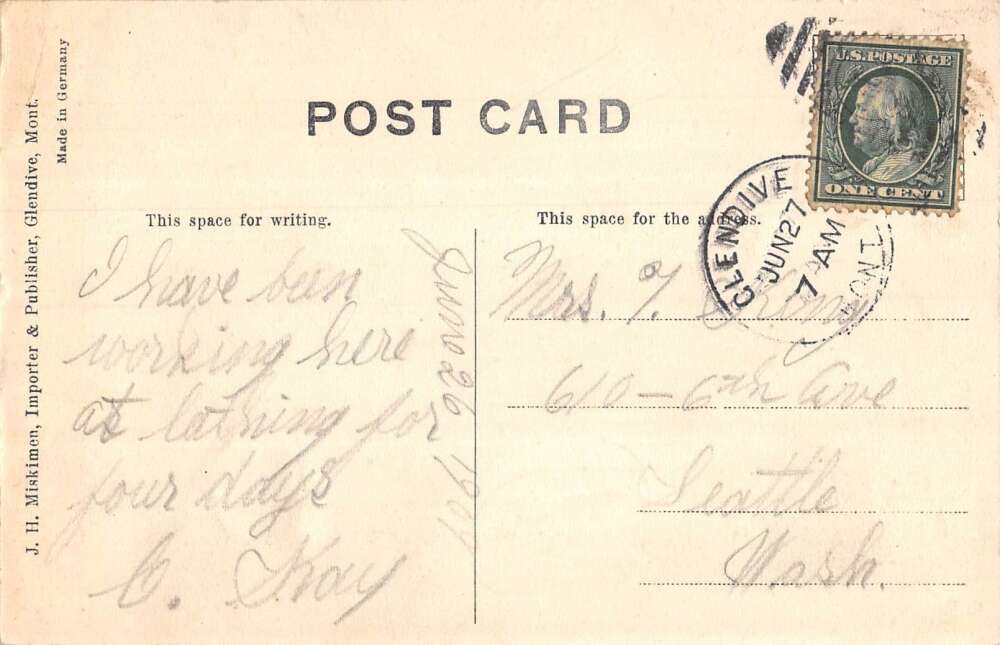 J. H. Miskimen, Importer & Publisher, Glendive, Mont.
Made in Germany
POST CARD
U.S. POSTAGE
ONE CENT
GLENDIVE
JUN 27
7 AM
MONT.
This space for writing.
I have been
working here
at lathing for
four days
C. Kay
June 26
This space for the address.
Mrs.
610 - 6th Ave
Seattle
Wash.